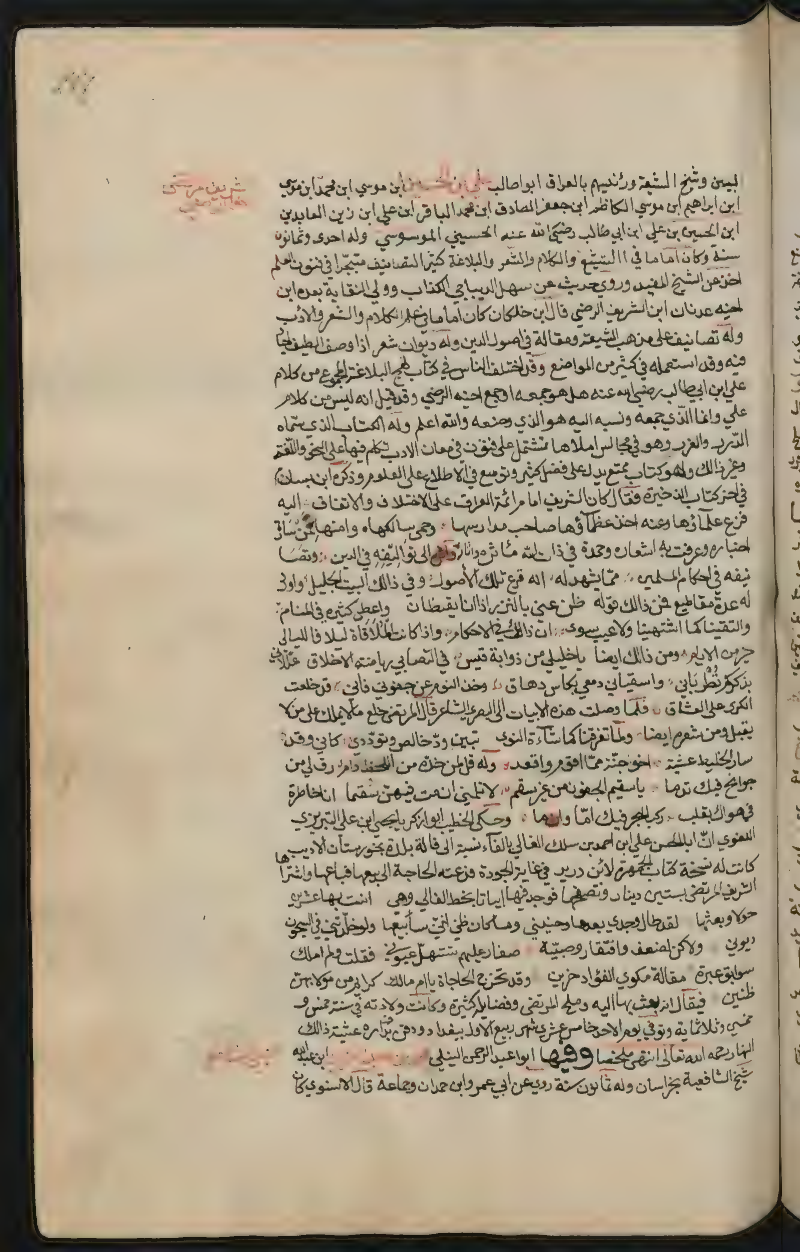 شريف مرتضى
وشيخ الشيعة ورئيسهم بالعراق ابو اطالب علي بن الحسين ابن موسي ابن محمد ابن موسي
ابن ابراهيم ابن موسي الكاظم ابن جعفر الصادق ابن محمد الباقر ابن علي ابن زين العابدين
ابن الحسين بن علي ابن ابي طالب رضي الله عنه الحسيني الموسوسي وله احدى وثمانون
سنة وكان اماما في التشيع والكلام والشعر والبلاغة كثير التصانيف متبحرا في فنون العلم
اخذ عن الشيخ المفيد وروي حديث عن سهل الديباجي الكذاب وولي النقابة بعده ابن
اخيه عدنان ابن الشريف الرضي قال ابن خلكان كان اماما في علم الكلام والشعر والادب
وله تصانيف على مذهب الشيعة ومقالة في اصول الدين وله ديوان شعر اذا وصف الطيف اجاد
فيه وقد استعمله في كثير من المواضع وقد اختلف الناس في كتاب نهج البلاغة المجموع من كلام
علي ابن ابي طالب رضي الله عنه هل هو جمعه ام جمع اخيه الرضي وقد قيل انه ليس من كلام
علي وانما الذي جمعه ونسبه اليه هو الذي وضعه والله اعلم وله الكتاب الذي سماه
الدرر والغرر وهو في مجالس املاها تشتمل على فنون في معان الادب تكلم فيها على النحو واللغة
وغير ذالك وهو كتاب ممتع يدل على فضل كثير وتوسع في الاطلاع على العلوم وذكره ابن بسام
في اخر كتاب الذخيرة فقال كان الشريف اما مرائمة العراق على الاختلاف والاتفاق اليه
فزع علماؤها وعنه اخذ عظماؤها صاحب مدارسها وحمى سالكها وانسها ممن سارت
اخباره وعرفت به اشعاره وحمدة في ذات الله مآثره واثاره الى تواليفه في الدين وتصا
نيفه في احكام المسلمين مما يشهد له انه فرع تلك الأصول وفي ذالك البيت الجليل واورد
له عدة مقاطيع فمن ذالك قوله ظن عني بالنزر اذ انا يقظان واعطى كثيره في المنام
والتقينا كما اشتهينا ولا عيب سوى ان ذالك في الاحكام واذا كانت الملاقاة ليلا فالليالي
خير من الايام ومن ذالك ايضا يا خليلي من ذوابة قيس في التصابي رياضة الاخلاق عللاني
بذكرهم تطرباني واسقياني دمعي بكاس دهاق وخذ النوم عن جفوني فاني قد خلعت
الكرى على العشاق فلما وصلت هذه الابيات الى البصري الشاعر قال المرتضى خلع ما لا يملك على من لا
يقبل ومن شعره ايضا ولما تفرقنا كما شاءة النوى تبين ود خالص وتودد كاني وقد
سار الخليط عشية اخو جنة مما اقوم واقعد وله قل لمن خده من اللحظ دام رق لي من
جوانح فيك تدما يا سقيم الجفون من غير سقم لا تلمني ان مت فيهن سقما انا خاطرة
في هواك بقلب ركب البحر فيك اما واما وحكى الخطيب ابو زكريا يحيى ابن علي التبريزي
اللغوي ان ابا الحسن علي ابن احمد بن سلك الفالي بالفآء نسبة الى فالة بلدة بخورستان الاديب
كانت له نسخة كتاب الجمهرة لابن دريد في غاية الجودة فدعته الحاجة الى بيعها فباعها واشتراها
الشريف المرتضى بستين دينار وتصفحها فوجد فيها ابياتا بخط الفالي وهي انست بها عشرين
حولا وبعتها لقد طال وجدي بعدها وحنيني وما كان ظني انني سابيعها ولو خلدتني في السجون
ديوني ولاكن لضعف وافتقار وصبية صغار عليهم تستهل عيوني فقلت ولم املك
سوابق عبرة مقالة مكوي الفؤاد حزين وقد تخرج الحاجاة يا ام مالك كرائم من مولى بهن
ظنين فيقال انه بعث بها اليه وملح المرتضى وفضايله كثيرة وكانت ولادته في سنة خمس و
خمسين وثلاثماية وتوفي يوم الاحد خامس عشري شهر ربيع الاول ببغداد ودفن في داره عشية ذالك
النهار رحمه الله تعالى انتهى ملخصا وفيها ابو عبد الرحمن النيلي ابن عبد الله
شيخ الشافعية بخراسان وله ثمانون سنة روى عن ابي عمرو ابن حمدان وجماعة قال الاسنوي كان